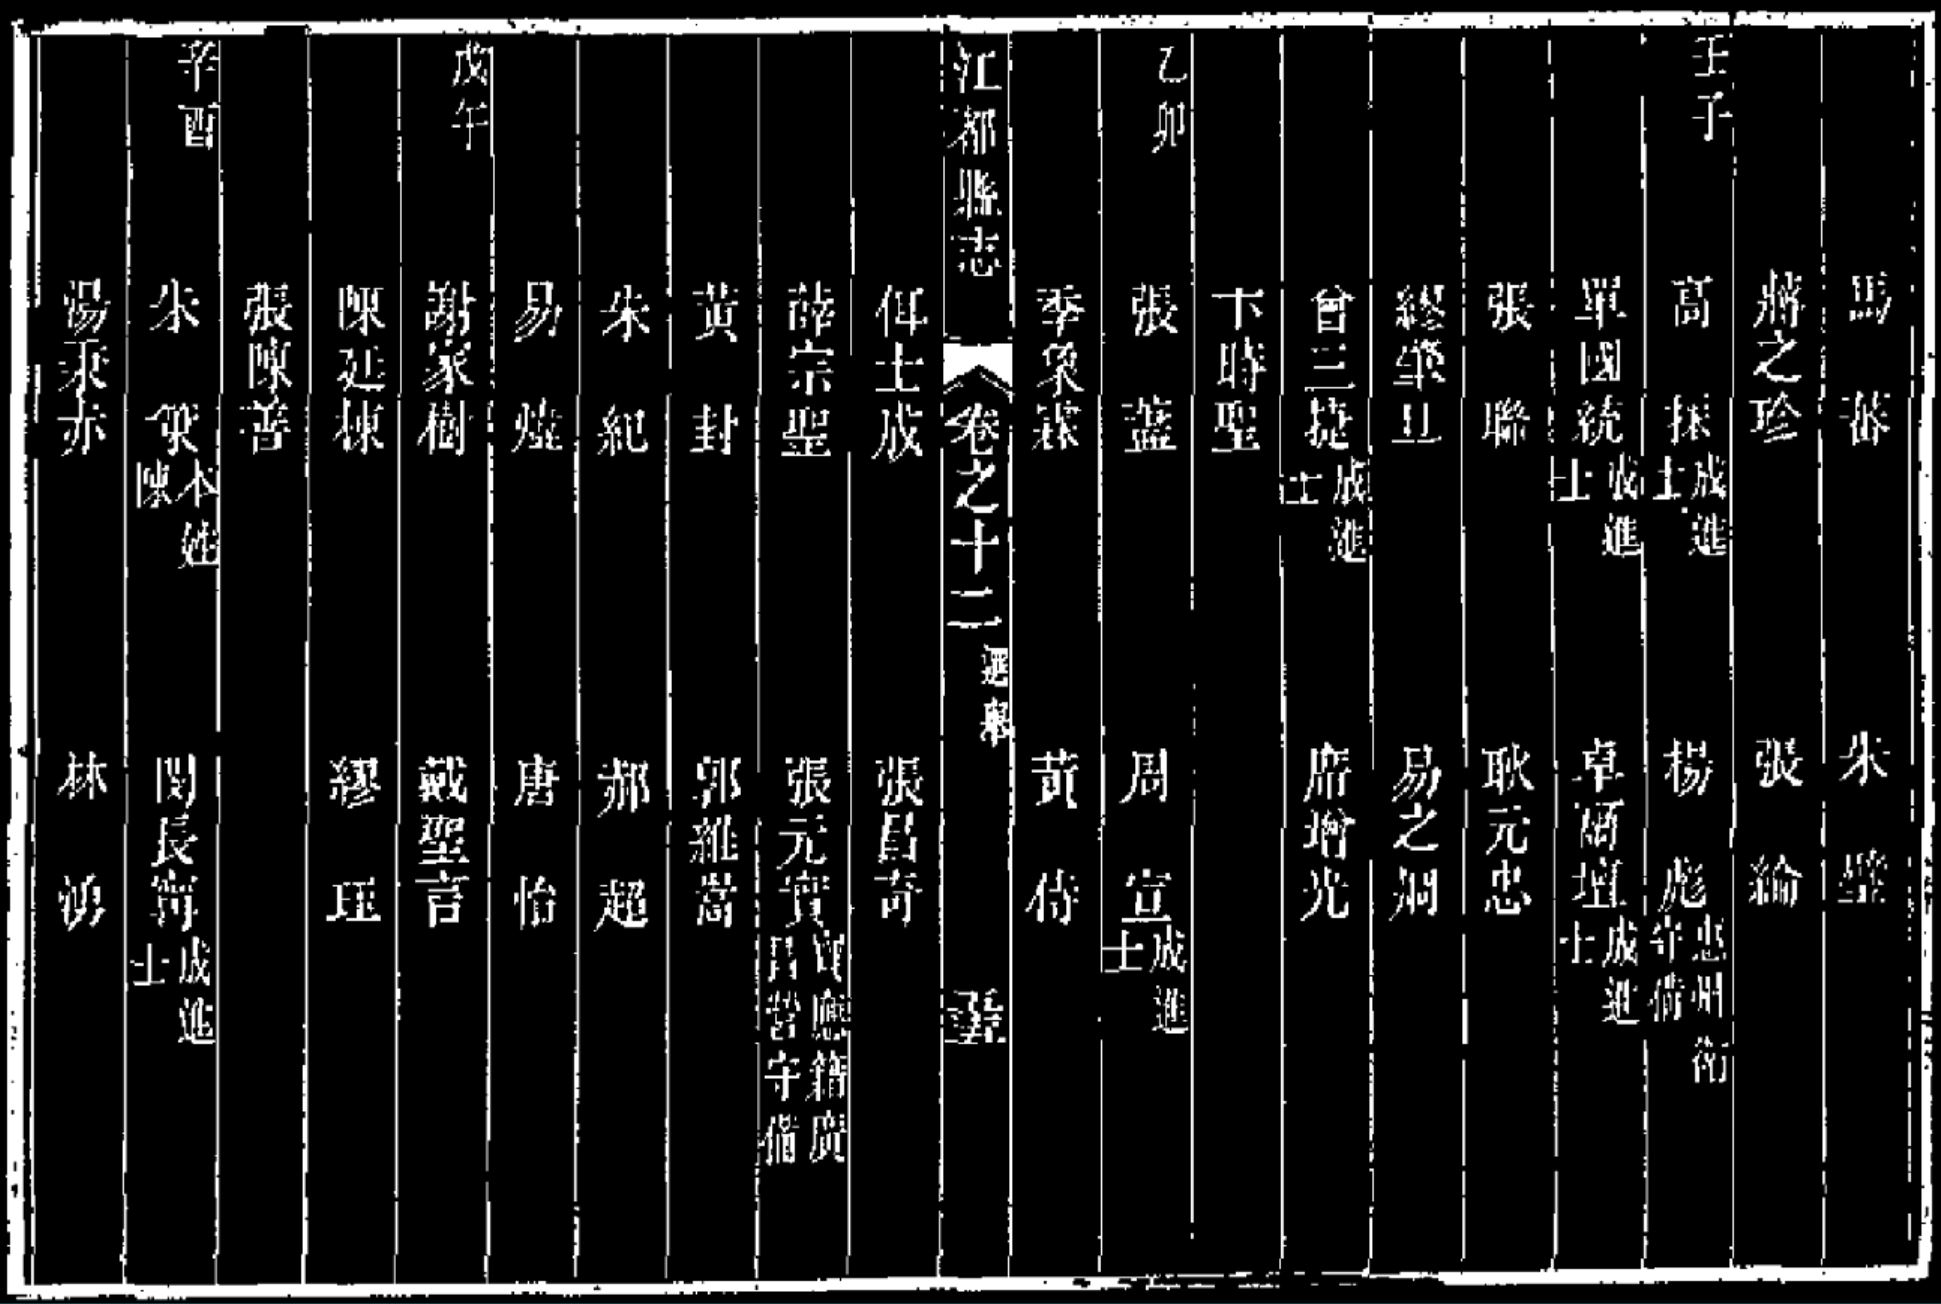 馬 蕃 朱 璧
蔣之珍 張 綸
壬子 高 採成進士 楊 彪忠州衛守備
單國統成進士 卓爾壇成進士
張 聯 耿元忠
繆肇旦 易之炯
曾三捷成進士 席增光
卞時聖
乙卯 張 藎 周 宣成進士
季霖 黃 侍
江都縣志 卷之十二 選舉
佴士成 張昌奇
薛宗聖 張元實寶應籍廣昌營守備
黃 封 郭維嵩
朱 紀 郝 超
易 煒 唐 怡
戊午 謝家樹 戴聖言
陳廷棟 繆 珏
張陳普
辛酉 朱 本姓陳 閔長寧成進士
湯秉亦 林